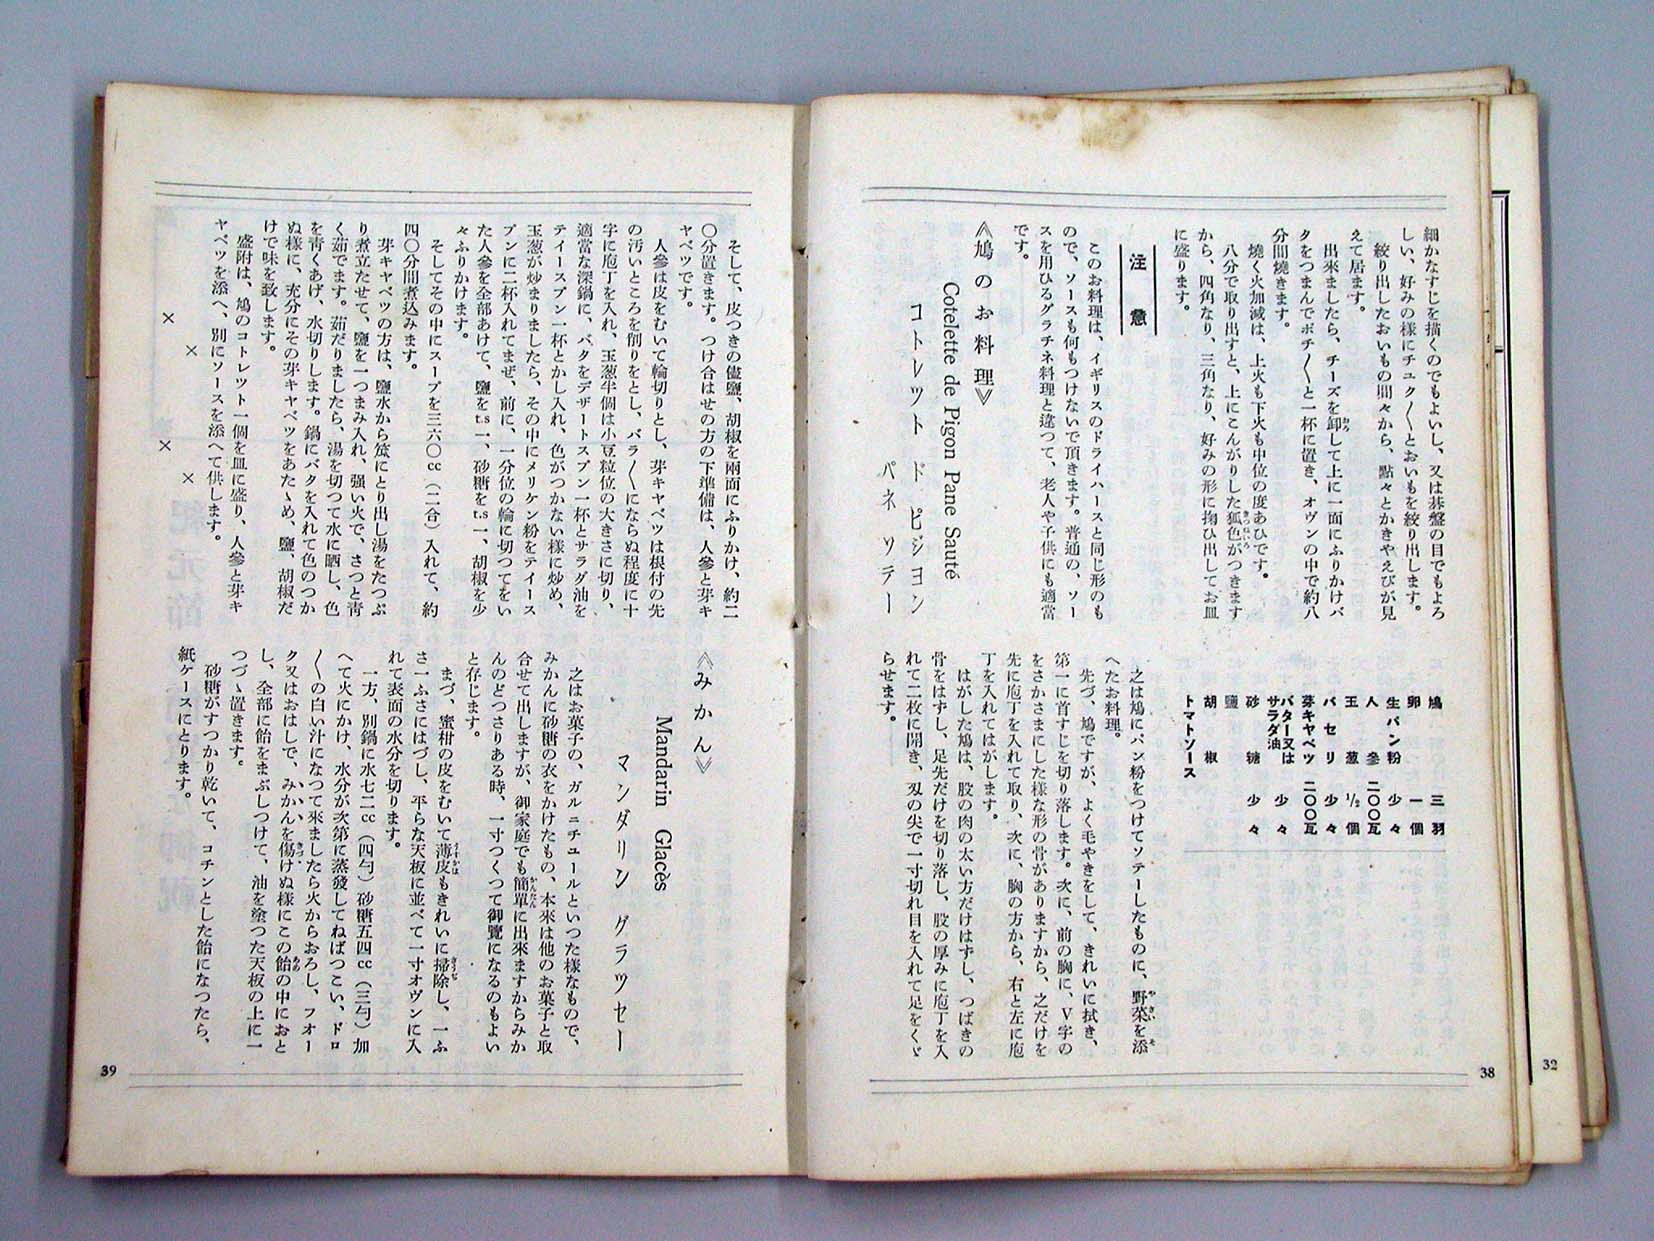 細かなすじを描くのでもよいし、又は碁盤の目でもよろ
しい、好みの様にチュク〳〵とおいもを絞り出します。
絞り出したおいもの間々から、點々とかきやえびが見
えて居ます。
出來ましたら、チーズを卸して上に一面にふりかけバ
タをつまんでポチ〳〵と一杯に置き、オヴンの中で約八
分間燒きます。
燒く火加減は、上火も下火も中位の度あひです。
八分で取り出すと、上にこんがりした狐色がつきます
から、四角なり、三角なり、好みの形に掬ひ出してお皿
に盛ります。
注意
このお料理は、イギリスのドライハースと同じ形のも
ので、ソースも何もつけないで頂きます。普通の、ソー
スを用ひるグラチネ料理と違つて、老人や子供にも適當
です。
《鳩のお料理》
Cotelette de Pigon Pane Sauté
コトレツト ド ピジヨン
パネ ソテー
鳩 三羽
卵 一個
生パン粉 少々
人參 二〇〇瓦
玉葱 1/2個
パセリ 少々
芽キヤベツ 二〇〇瓦
バター又はサラダ油 少々
砂糖 少々
鹽
胡椒
トマトソース
之は鳩にパン粉をつけてソテーしたものに、野菜を添
へたお料理。
先づ、鳩ですが、よく毛やきをして、きれいに拭き、
第一に首すじを切り落します。次に、前の胸に、V字の
をさかさまにした様な形の骨がありますから、之だけを
先に庖丁を入れて取り、次に、胸の方から、右と左に庖
丁を入れてはがします。
はがした鳩は、股の肉の太い方だけはずし、つばきの
骨をはずし、足先だけを切り落し、股の厚みに庖丁を入
れて二枚に開き、刄の尖で一寸切れ目を入れて足をくゞ
らせます。
38
32
そして、皮つきの儘鹽、胡椒を兩面にふりかけ、約二
〇分置きます。つけ合はせの方の下準備は、人參と芽キ
ヤベツです。
人參は皮をむいて輪切りとし、芽キヤベツは根付の先
の汚いところを削りをとし、バラ〳〵にならぬ程度に十
字に庖丁を入れ、玉葱半個は小豆粒位の大きさに切り、
適當な深鍋に、バタをデザートスプン一杯とサラダ油を
テイースプン一杯とかし入れ、色がつかない樣に炒め、
玉葱が炒まりましたら、その中にメリケン粉をテイース
プンに二杯入れてまぜ、前に、一分位の輪に切つてをい
た人參を全部あけて、鹽をt.s一、砂糖をt.s一、胡椒を少
々ふりかけます。
そしてその中にスープを三六〇cc（二合）入れて、約
四〇分間煮込みます。
芽キヤベツの方は、鹽水から笊にとり出し湯をたつぷ
り煮立たせて、鹽を一つまみ入れ、强い火で、さつと靑
く茹でます。茹だりましたら、湯を切つて水に晒し、色
を靑くあげ、水切りします。鍋にバタを入れて色のつか
ぬ樣に、充分にその芽キヤベツをあたゝめ、鹽、胡椒だ
けで味を致します。
盛附は、鳩のコトレツト一個を皿に盛り、人參と芽キ
ヤベツを添へ、別にソースを添へて供します。
× × × ×
《みかん》
Mandarin Glacès
マンダリン グラツセー
之はお菓子の、ガルニチユールといつた樣なもので、
みかんに砂糖の衣をかけたもの、本來は他のお菓子と取
合せて出しますが、御家庭でも簡單に出來ますからみか
んのどつさりある時、一寸つくつて御覽になるのもよい
と存じます。
まづ、蜜柑の皮をむいて薄皮もきれいに掃除し、一ふ
さ一ふさにはづし、平らな天板に並べて一寸オヴンに入
れて表面の水分を切ります。
一方、別鍋に水七二cc（四勺）砂糖五四cc（三勺）加
へて火にかけ、水分が次第に蒸發してねばつこい、ドロ
〳〵の白い汁になつて來ましたら火からおろし、フオー
ク又はおはしで、みかんを傷けぬ樣にこの飴の中におと
し、全部に飴をまぶしつけて、油を塗つた天板の上に一
つづゝ置きます。
砂糖がすつかり乾いて、コチンとした飴になつたら、
紙ケースにとります。
39